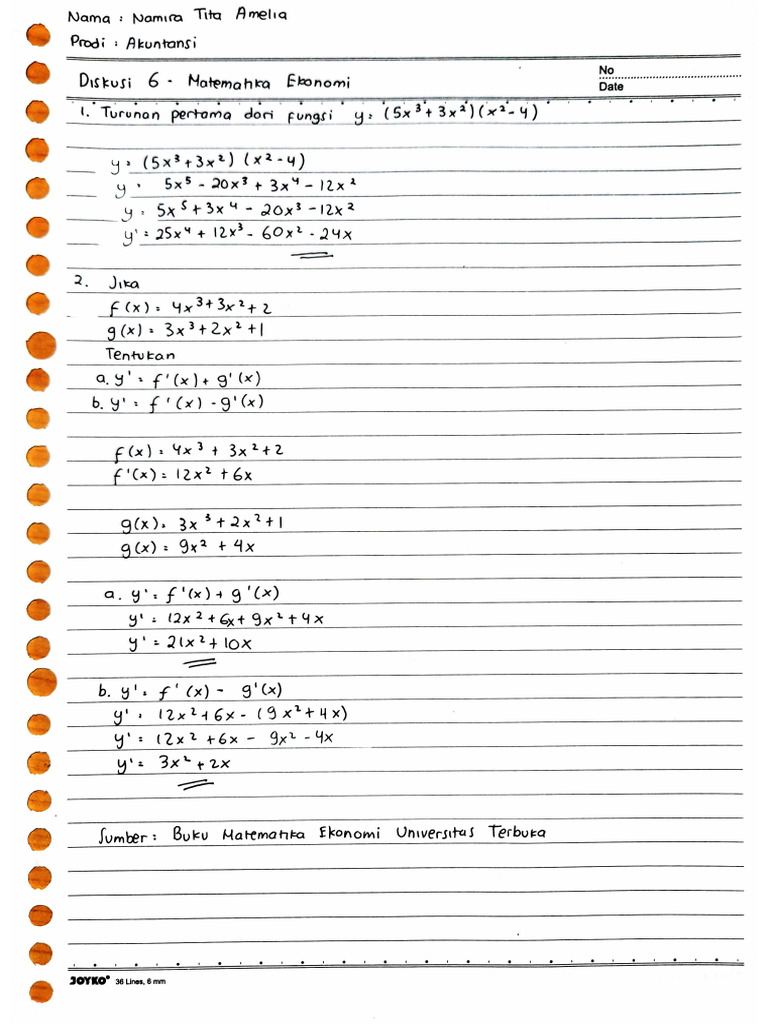 Nama : Namira Tita Amelia
Prodi : Akuntansi
No
Diskusi 6 - Matematika Ekonomi
Date
1. Turunan pertama dari fungsi y = (5x³ + 3x²)(x² - 4)
y = (5x³ + 3x²) (x² - 4)
y = 5x⁵ - 20x³ + 3x⁴ - 12x²
y = 5x⁵ + 3x⁴ - 20x³ - 12x²
y' = 25x⁴ + 12x³ - 60x² - 24x
2. Jika
f(x) = 4x³ + 3x² + 2
g(x) = 3x³ + 2x² + 1
Tentukan
a. y' = f'(x) + g'(x)
b. y' = f'(x) - g'(x)
f(x) = 4x³ + 3x² + 2
f'(x) = 12x² + 6x
g(x) = 3x³ + 2x² + 1
g(x) = 9x² + 4x
a. y' = f'(x) + g'(x)
y' = 12x² + 6x + 9x² + 4x
y' = 21x² + 10x
b. y' = f'(x) - g'(x)
y' = 12x² + 6x - (9x² + 4x)
y' = 12x² + 6x - 9x² - 4x
y' = 3x² + 2x
Sumber : Buku Matematika Ekonomi Universitas Terbuka
JOYKO® 36 Lines, 6 mm